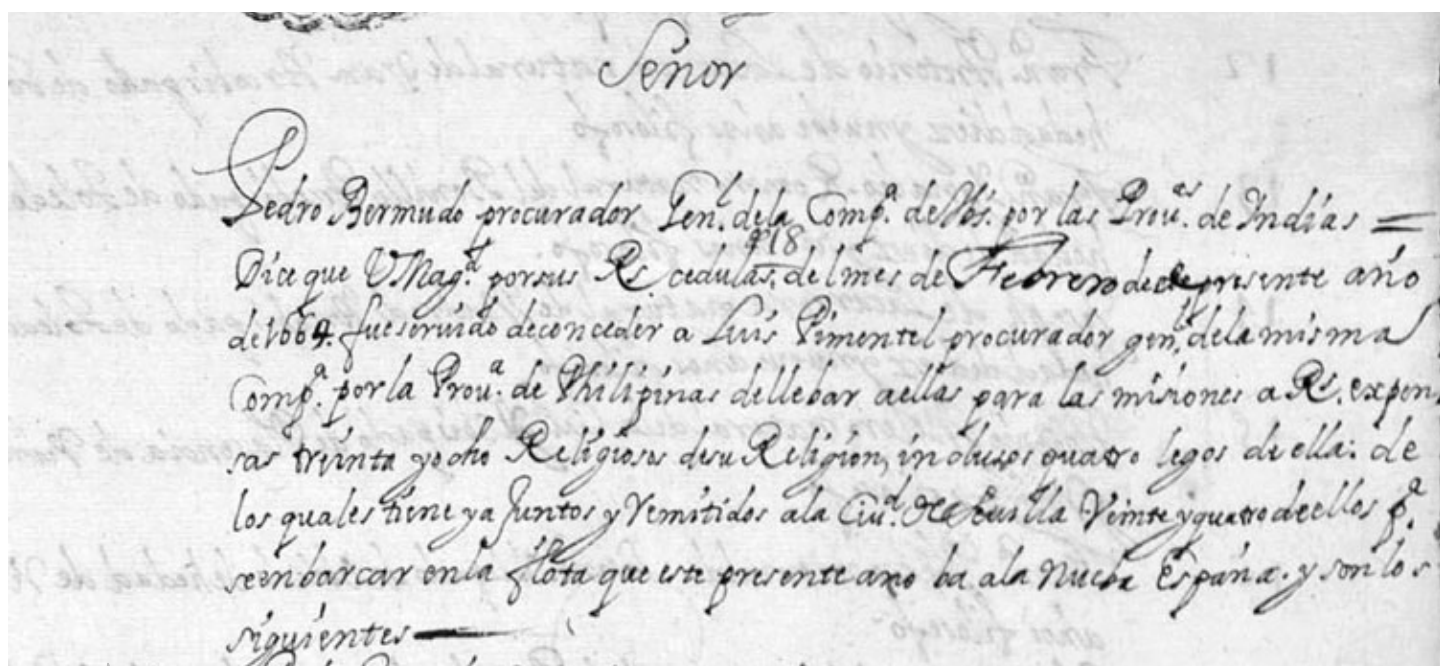 Señor
Pedro Bermudo procurador Gen.l dela Comp.a de Jhs. por las Prou.as de Indias =
Dice que VMag.d por sus Rs cedulas, de 18 del mes de Febrero de este presente año
de 1664. fue seruido deconceder a Luis Pimentel procurador gen.l dela misma
Comp.a por la Prou.a de Philipinas dellebar aellas para las misiones a Rs. expen
sas treinta yocho Religiosos desu Religion, inclusos quatro legos de ella: de
los quales tiene ya Juntos y Remitidos ala Ciu.d de Seuilla Veinte yquatro deellos p.a
seenbarcar en la flota que este presente año ba ala nueba España. y son los
siguientes